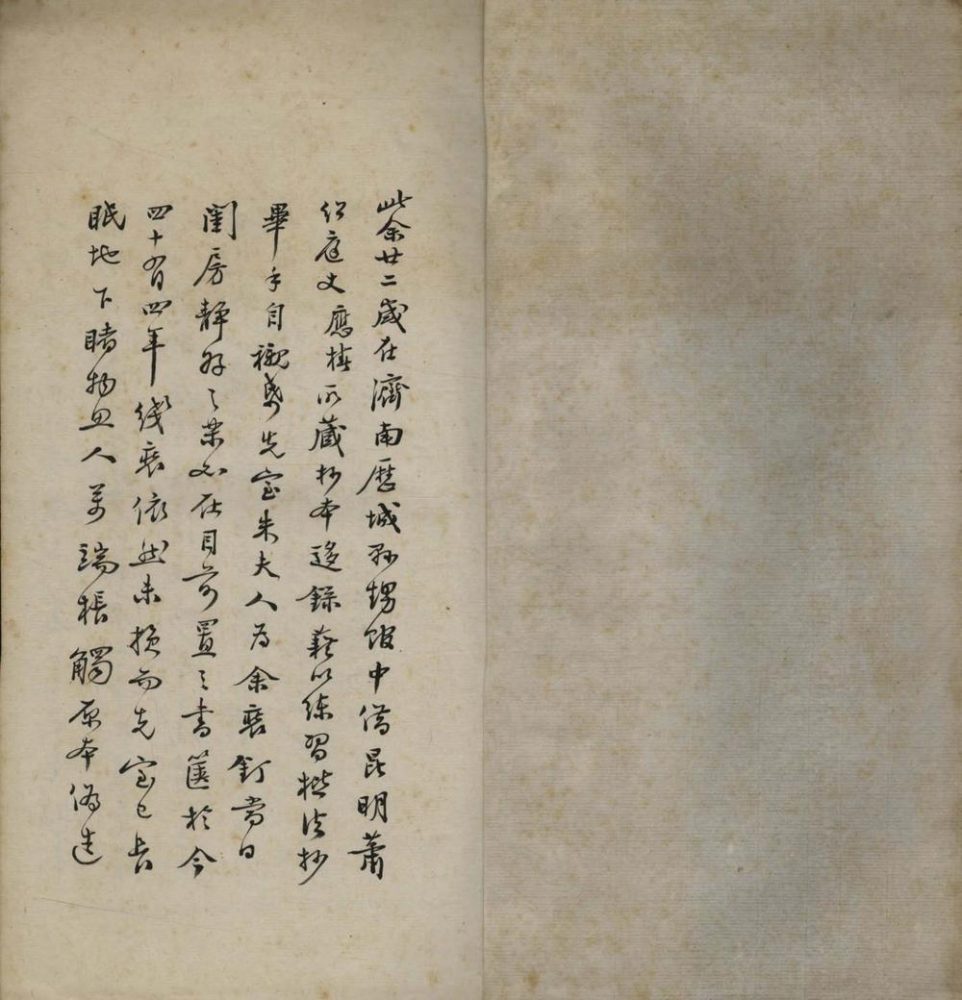 此余廿二歲在濟南歷城縣甥館中借昆明蕭
紹庭丈應椿所藏抄本迻錄藉以練習楷法抄
畢手自襯帋先室朱夫人為余裝釘當日
閨房靜好之樂如在目前置之書篋於今
四十有四年綫裝依然未損而先室已長
眠地下睹物思人萬端棖觸原本偽造